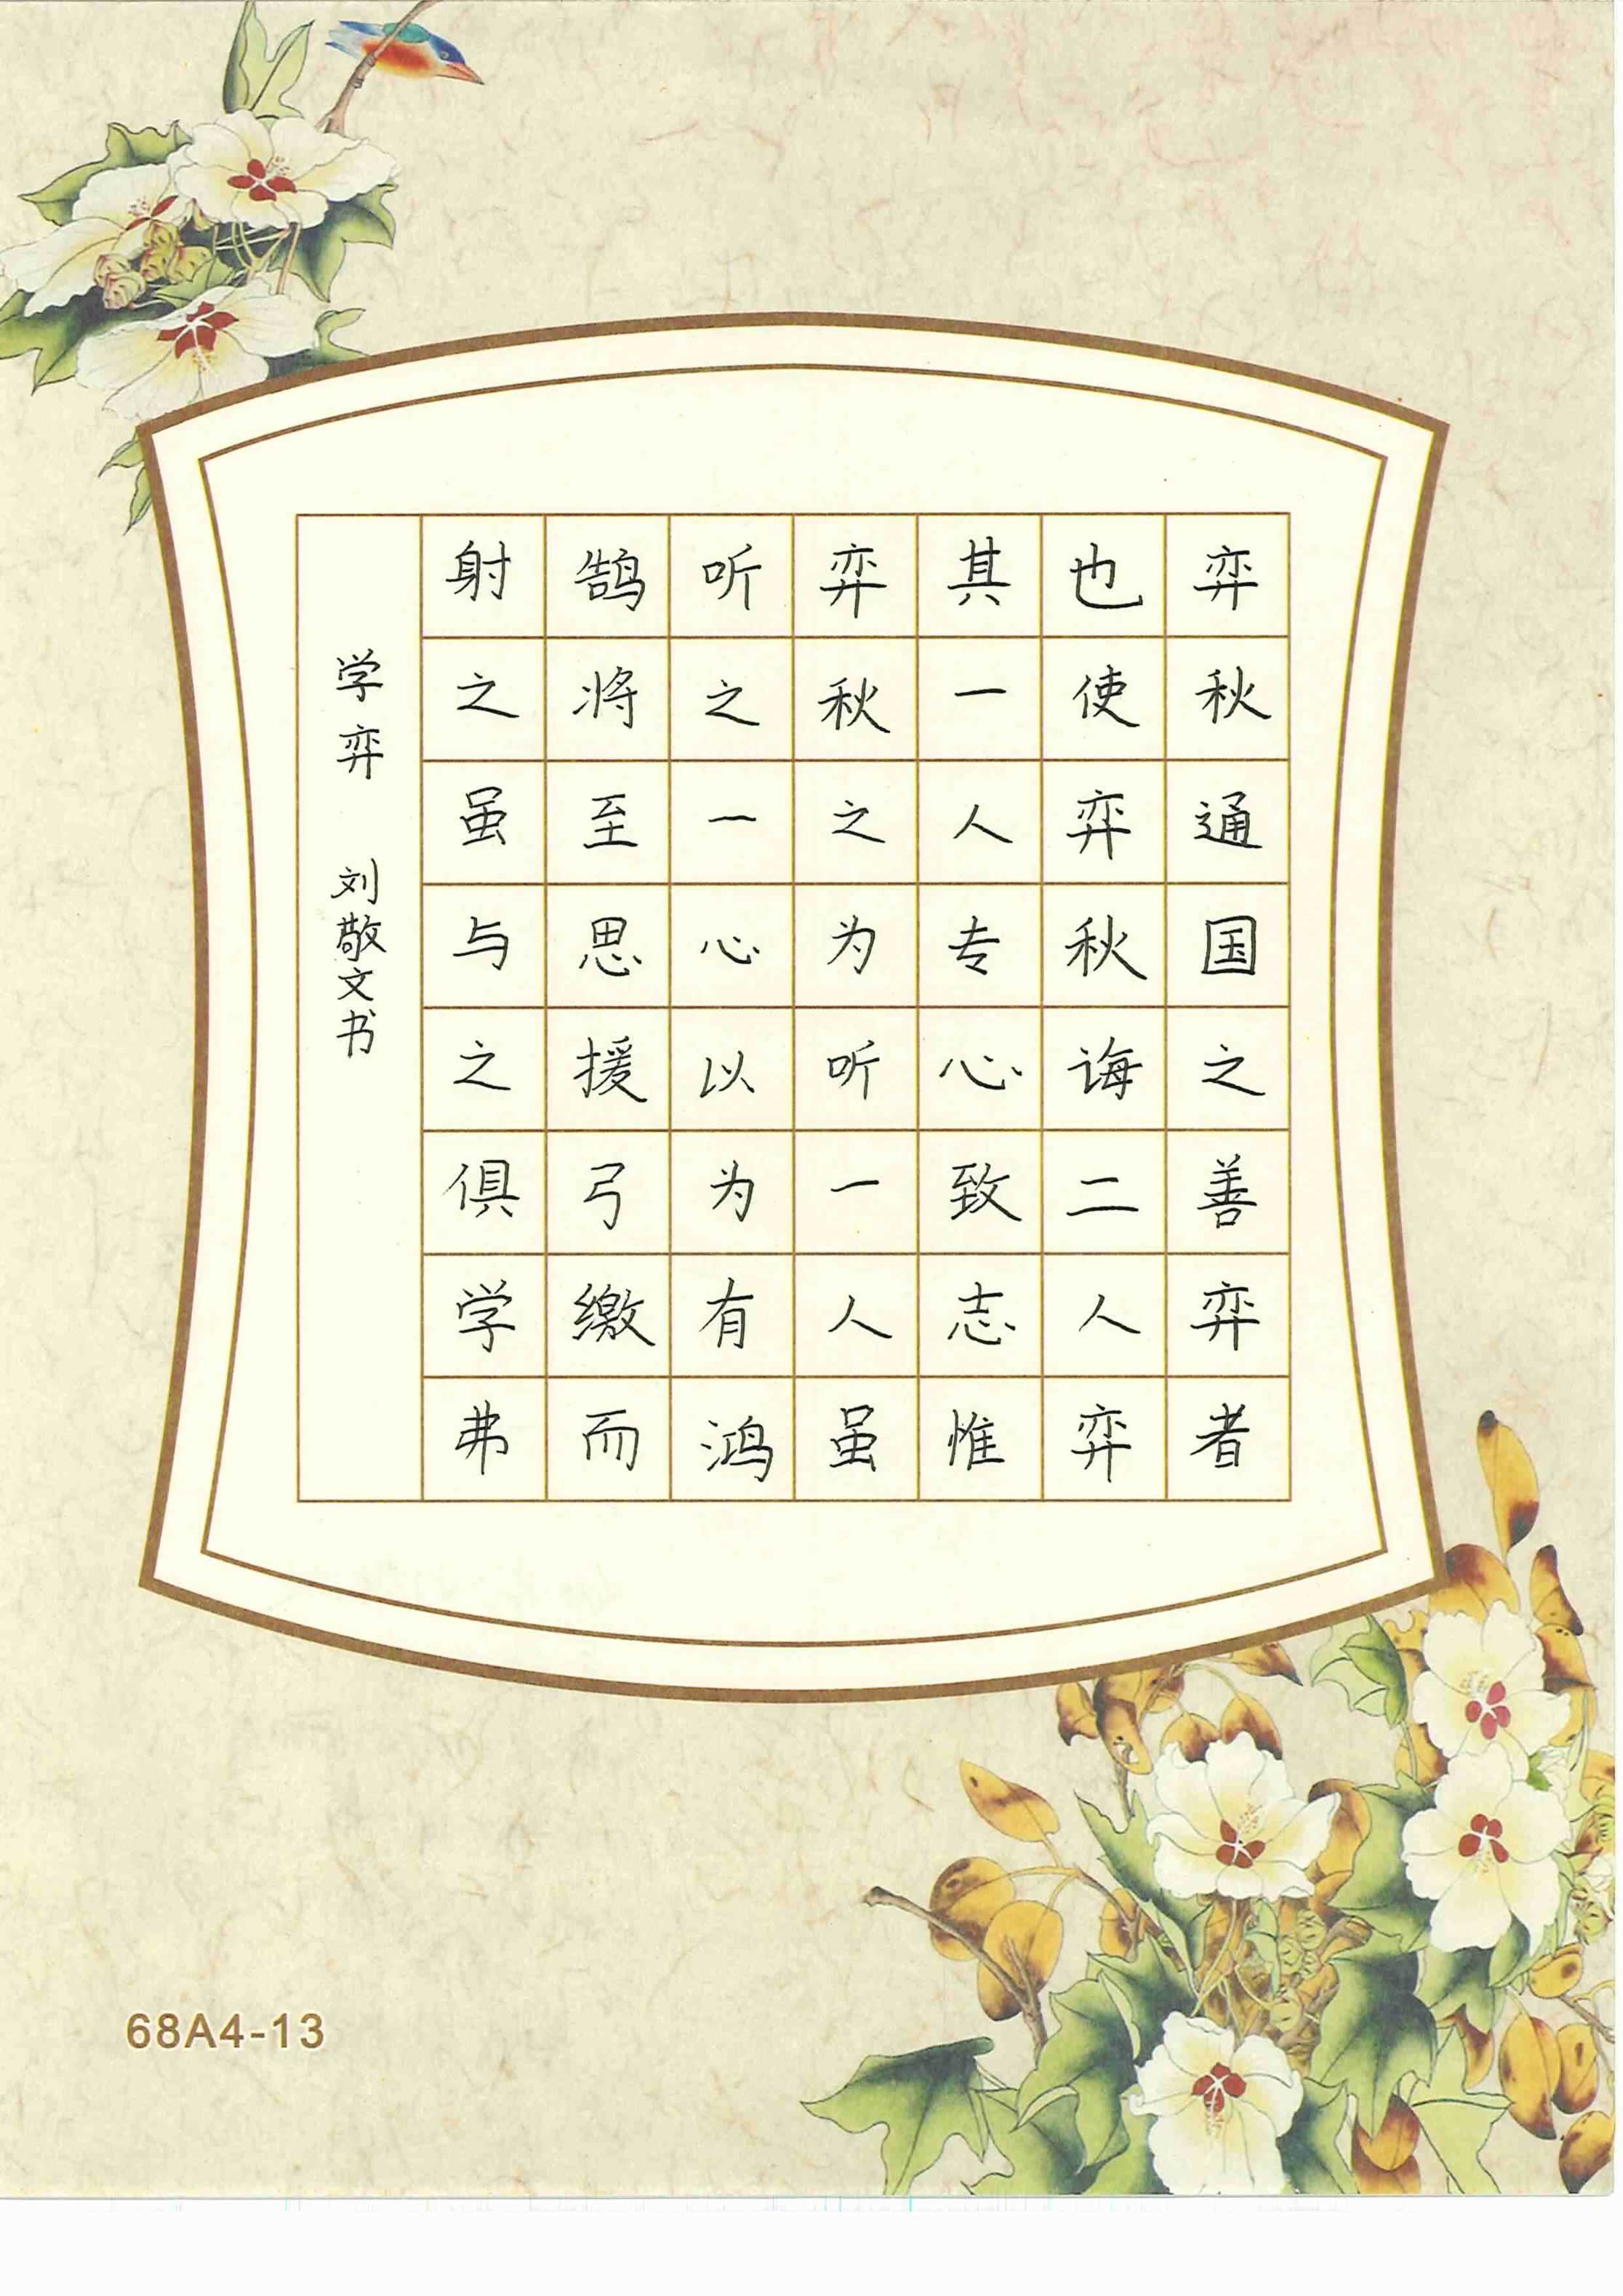 弈秋通国之善弈者
也使弈秋诲二人弈
其一人专心致志惟
弈秋之为听一人虽
听之一心以为有鸿
鹄将至思援弓缴而
射之虽与之俱学弗
学弈 刘敬文书
68A4-13